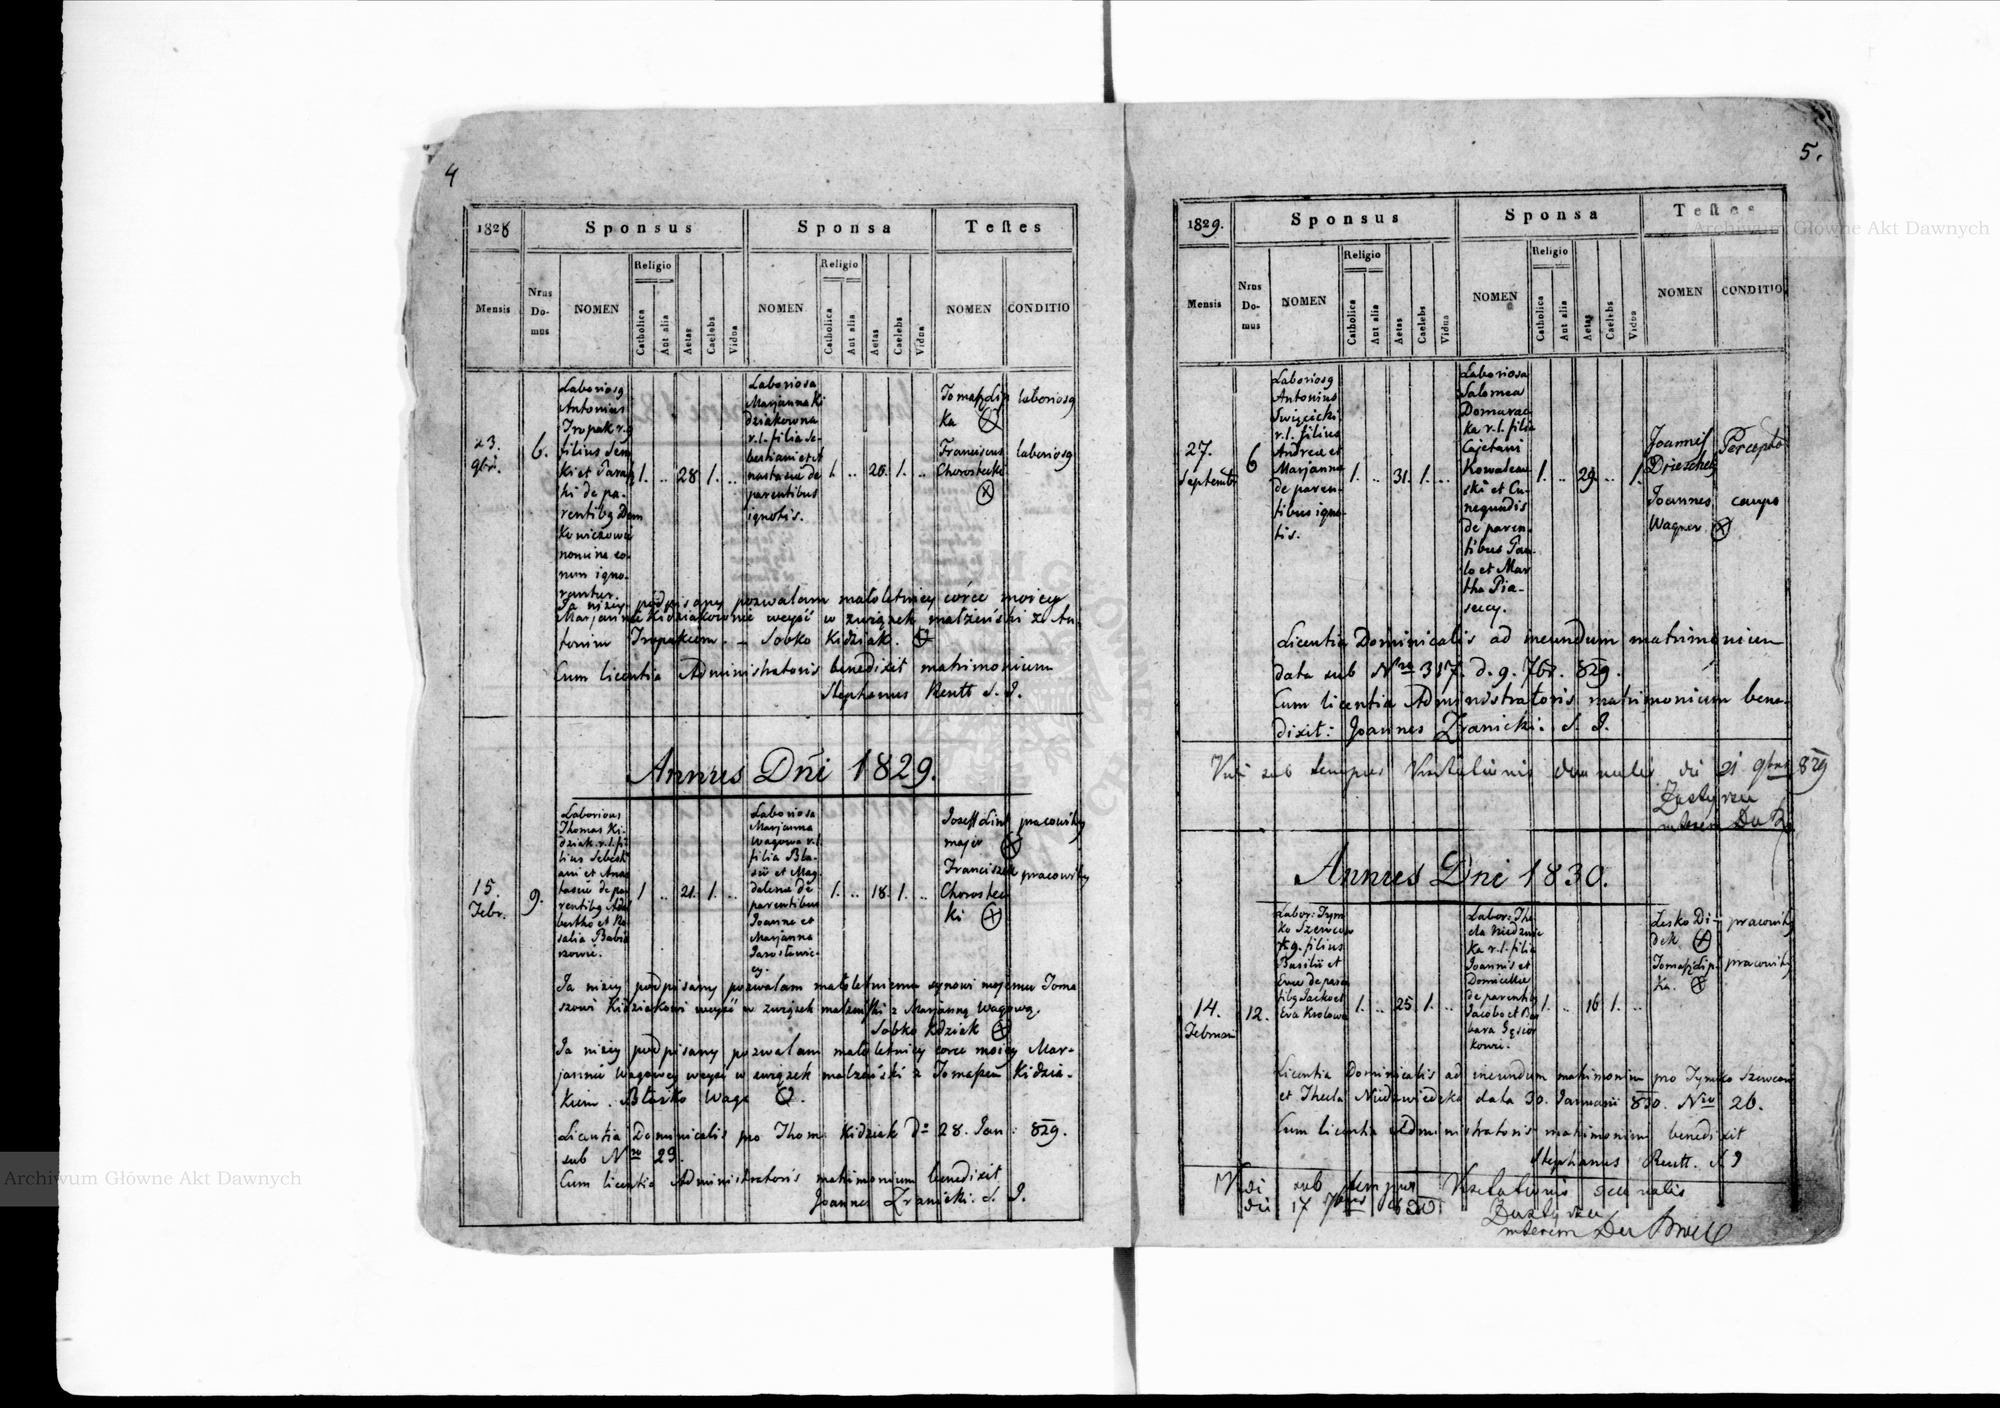 4
1828
Sponsus
Sponsa
Testes
Mensis
Nrus Domus
NOMEN
Religio
Catholica
Aut alia
Aetas
Caelebs
Vidua
NOMEN
Religio
Catholica
Aut alia
Aetas
Caelebs
Vidua
NOMEN
CONDITIO
23.
9bris.
6.
Laboriosg
Antonius
Tropak r.g
filius Sem
ki et Paras
ki de pa-
rentibg Dem
kowiczowie
nomine eo-
rum igno-
rantur.
1. .. 28 1. ..
Laboriosa
Marjanna Ki
dziakowna
r.l. filia Se-
bestiani et A
nastasiae de
parentibus
ignotis.
1. .. 20. 1. ..
Tomasz Lip
ka
laboriosg
Franciscus
Chorostecki
laboriosg
Ja niżey podpisany pozwalam małoletniey córce moiey
Marjannie Kidziakownie weyść w związek małżeński z An-
tonim Tropakiem. – Sobko Kidziak.
Cum licentia Administratoris benedixit matrimonium
Stephanus Reutt S. J.
Annus Dñi 1829.
15.
Febr.
9.
Laboriosus
Thomas Ki-
dziak r.l. fi-
lius Sebesti
ani et Anas
tasiae de pa
rentibg Adal
bertho et Ro
salia Babia
rzowie.
1 .. 21. 1. ..
Laboriosa
Marjanna
Wagowa r.l.
filia Bla-
sii et Mag
dalenae de
parentibus
Joanne et
Marjanna
Jarosławic-
cy.
1. .. 18. 1. ..
Josef Lint
majer
pracowity
Franciszek
Chorostec
ki
pracowity
Ja niżey podpisany pozwalam małoletniemu synowi mojemu Toma
szowi Kidziakowi weyść w związek małżeński z Marjanną Wagową.
Sobko Kidziak
Ja niżey podpisany pozwalam małoletniey corce moiey Mar-
jannie Wagowey weyść w związek małżeński z Tomaszem Kidzia-
kiem. Błażko Waga
Licentia Dominicalis pro Thom: Kidziak d° 28. Jan: 829.
sub Nro 23.
Cum licentia Administratoris matrimonium benedixit
Joannes Zranicki. S. J.
5.
1829.
Sponsus
Sponsa
Testes
Mensis
Nrus Domus
NOMEN
Religio
Catholica
Aut alia
Aetas
Caelebs
Vidua
NOMEN
Religio
Catholica
Aut alia
Aetas
Caelebs
Vidua
NOMEN
CONDITIO
27.
Septembr
6
Laboriosg
Antonius
Święcicki
r.l. filius
Andreae et
Marjanna
de paren-
tibus igno-
tis.
1. .. 31. 1. ..
Laboriosa
Salomea
Domarac
ka r.l. filia
Cajetani
Kowalew
ski et Cu-
negundis
de paren-
tibus Pau-
lo et Mar
tha Pia-
seccy.
1. .. 29. .. 1.
Joannes
Perceptor
Joannes
Wagner
caupo
Licentia Dominicalis ad ineundum matrimonium
data sub Nro 317. d. 9. 7br. 829.
Cum licentia Administratoris matrimonium bene-
dixit: Joannes Zranicki. S. J.
Vidi sub tempus Visitationis decanalis die 21 9bris 829
Annus Dni 1830.
14.
Februar
12.
Labor: Tym
ko Szewców
r.g. filius
Basilii et
Evae de paren
tibg Jacko et
Eva Krolowa
1. .. 25 1. ..
Labor: The
cla Niedzwiec
ka r.l. filia
Joannis et
Domicellae
de parentibg
Jacobo et Bar
bara Gąsior
kowie.
1. .. 16 1. ..
Lesko Di-
dek
pracowity
Tomasz Lip
ka.
pracowity
Licentia Dominicalis ad ineundum matrimonium pro Tymko Szewcow
et Thecla Niedzwiedzka data 30. Januarii 830. Nro 26.
Cum licentia Administratoris matrimonium benedixit
Stephanus Reutt. S J
Vidi sub tempus Visitationis decanalis
die 17 7bris 830
Archiwum Główne Akt Dawnych
Archiwum Główne Akt Dawnych